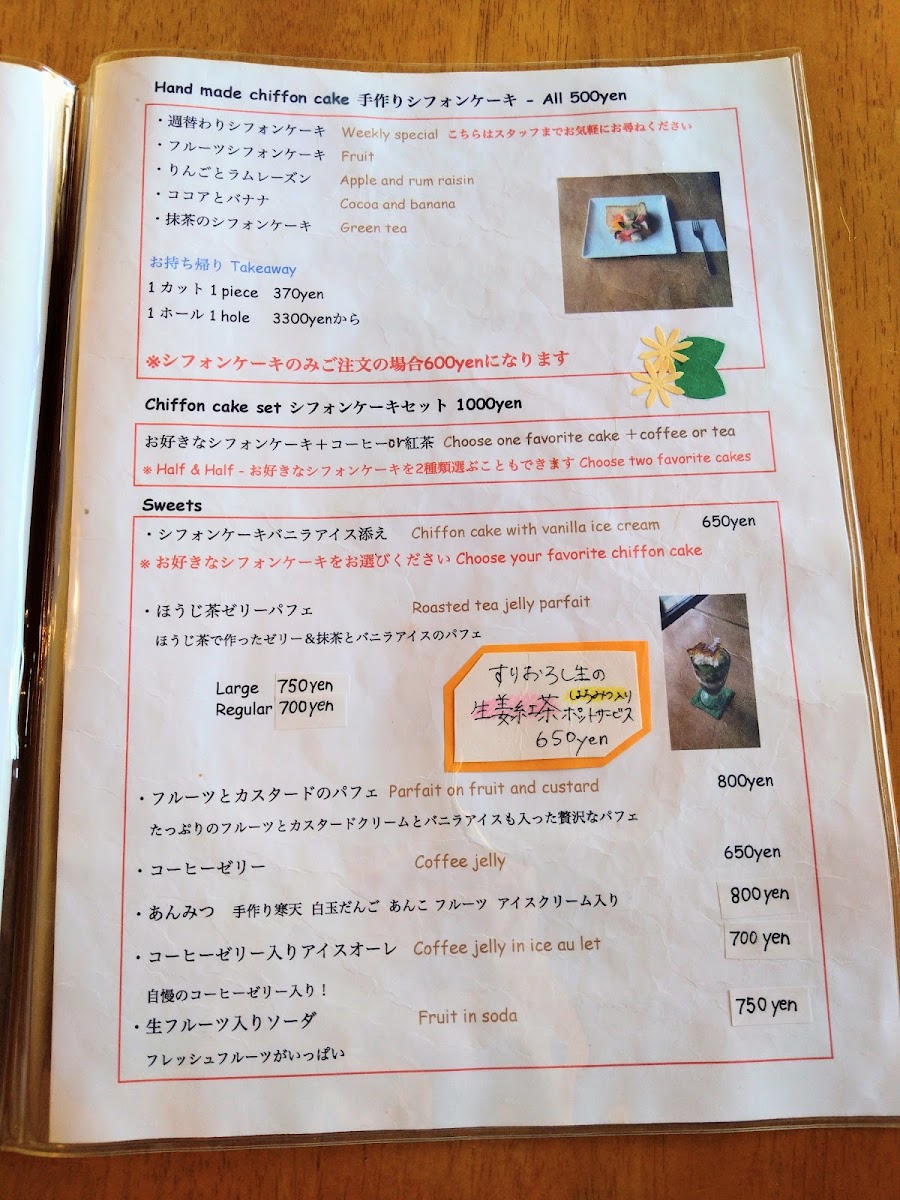 Hand made chiffon cake 手作りシフォンケーキ - All 500yen
・週替わりシフォンケーキ Weekly special こちらはスタッフまでお気軽にお尋ねください
・フルーツシフォンケーキ Fruit
・りんごとラムレーズン Apple and rum raisin
・ココアとバナナ Cocoa and banana
・抹茶のシフォンケーキ Green tea
お持ち帰り Takeaway
1 カット 1 piece 370yen
1 ホール 1 hole 3300yenから
※シフォンケーキのみご注文の場合600yenになります
Chiffon cake set シフォンケーキセット 1000yen
お好きなシフォンケーキ＋コーヒーor紅茶 Choose one favorite cake ＋coffee or tea
※ Half & Half - お好きなシフォンケーキを2種類選ぶこともできます Choose two favorite cakes
Sweets
・シフォンケーキバニラアイス添え Chiffon cake with vanilla ice cream 650yen
※ お好きなシフォンケーキをお選びください Choose your favorite chiffon cake
・ほうじ茶ゼリーパフェ Roasted tea jelly parfait
ほうじ茶で作ったゼリー＆抹茶とバニラアイスのパフェ
Large 750yen
Regular 700yen
すりおろし生の
生姜紅茶 はちみつ入り ポットサービス
650yen
・フルーツとカスタードのパフェ Parfait on fruit and custard 800yen
たっぷりのフルーツとカスタードクリームとバニラアイスも入った贅沢なパフェ
・コーヒーゼリー Coffee jelly 650yen
・あんみつ 手作り寒天 白玉だんご あんこ フルーツ アイスクリーム入り 800yen
・コーヒーゼリー入りアイスオーレ Coffee jelly in ice au let 700yen
自慢のコーヒーゼリー入り！
・生フルーツ入りソーダ Fruit in soda 750yen
フレッシュフルーツがいっぱい